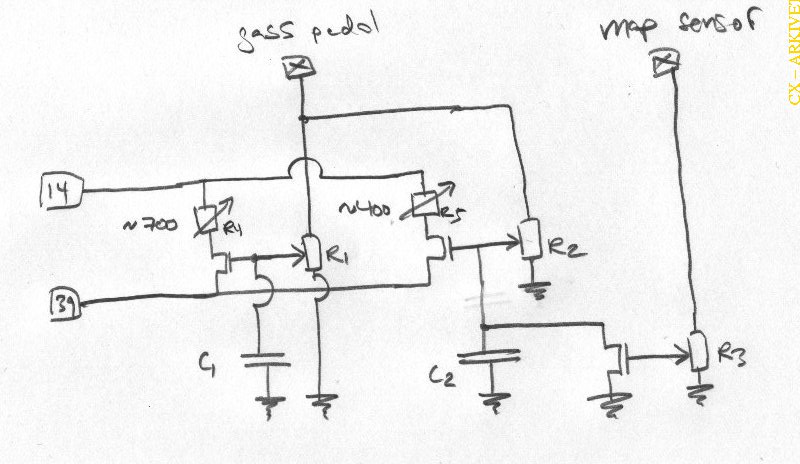 gass pedal
map sensor
CX – ARKIVET
14
~700
R4
~400
R5
R1
R2
39
C1
C2
R3